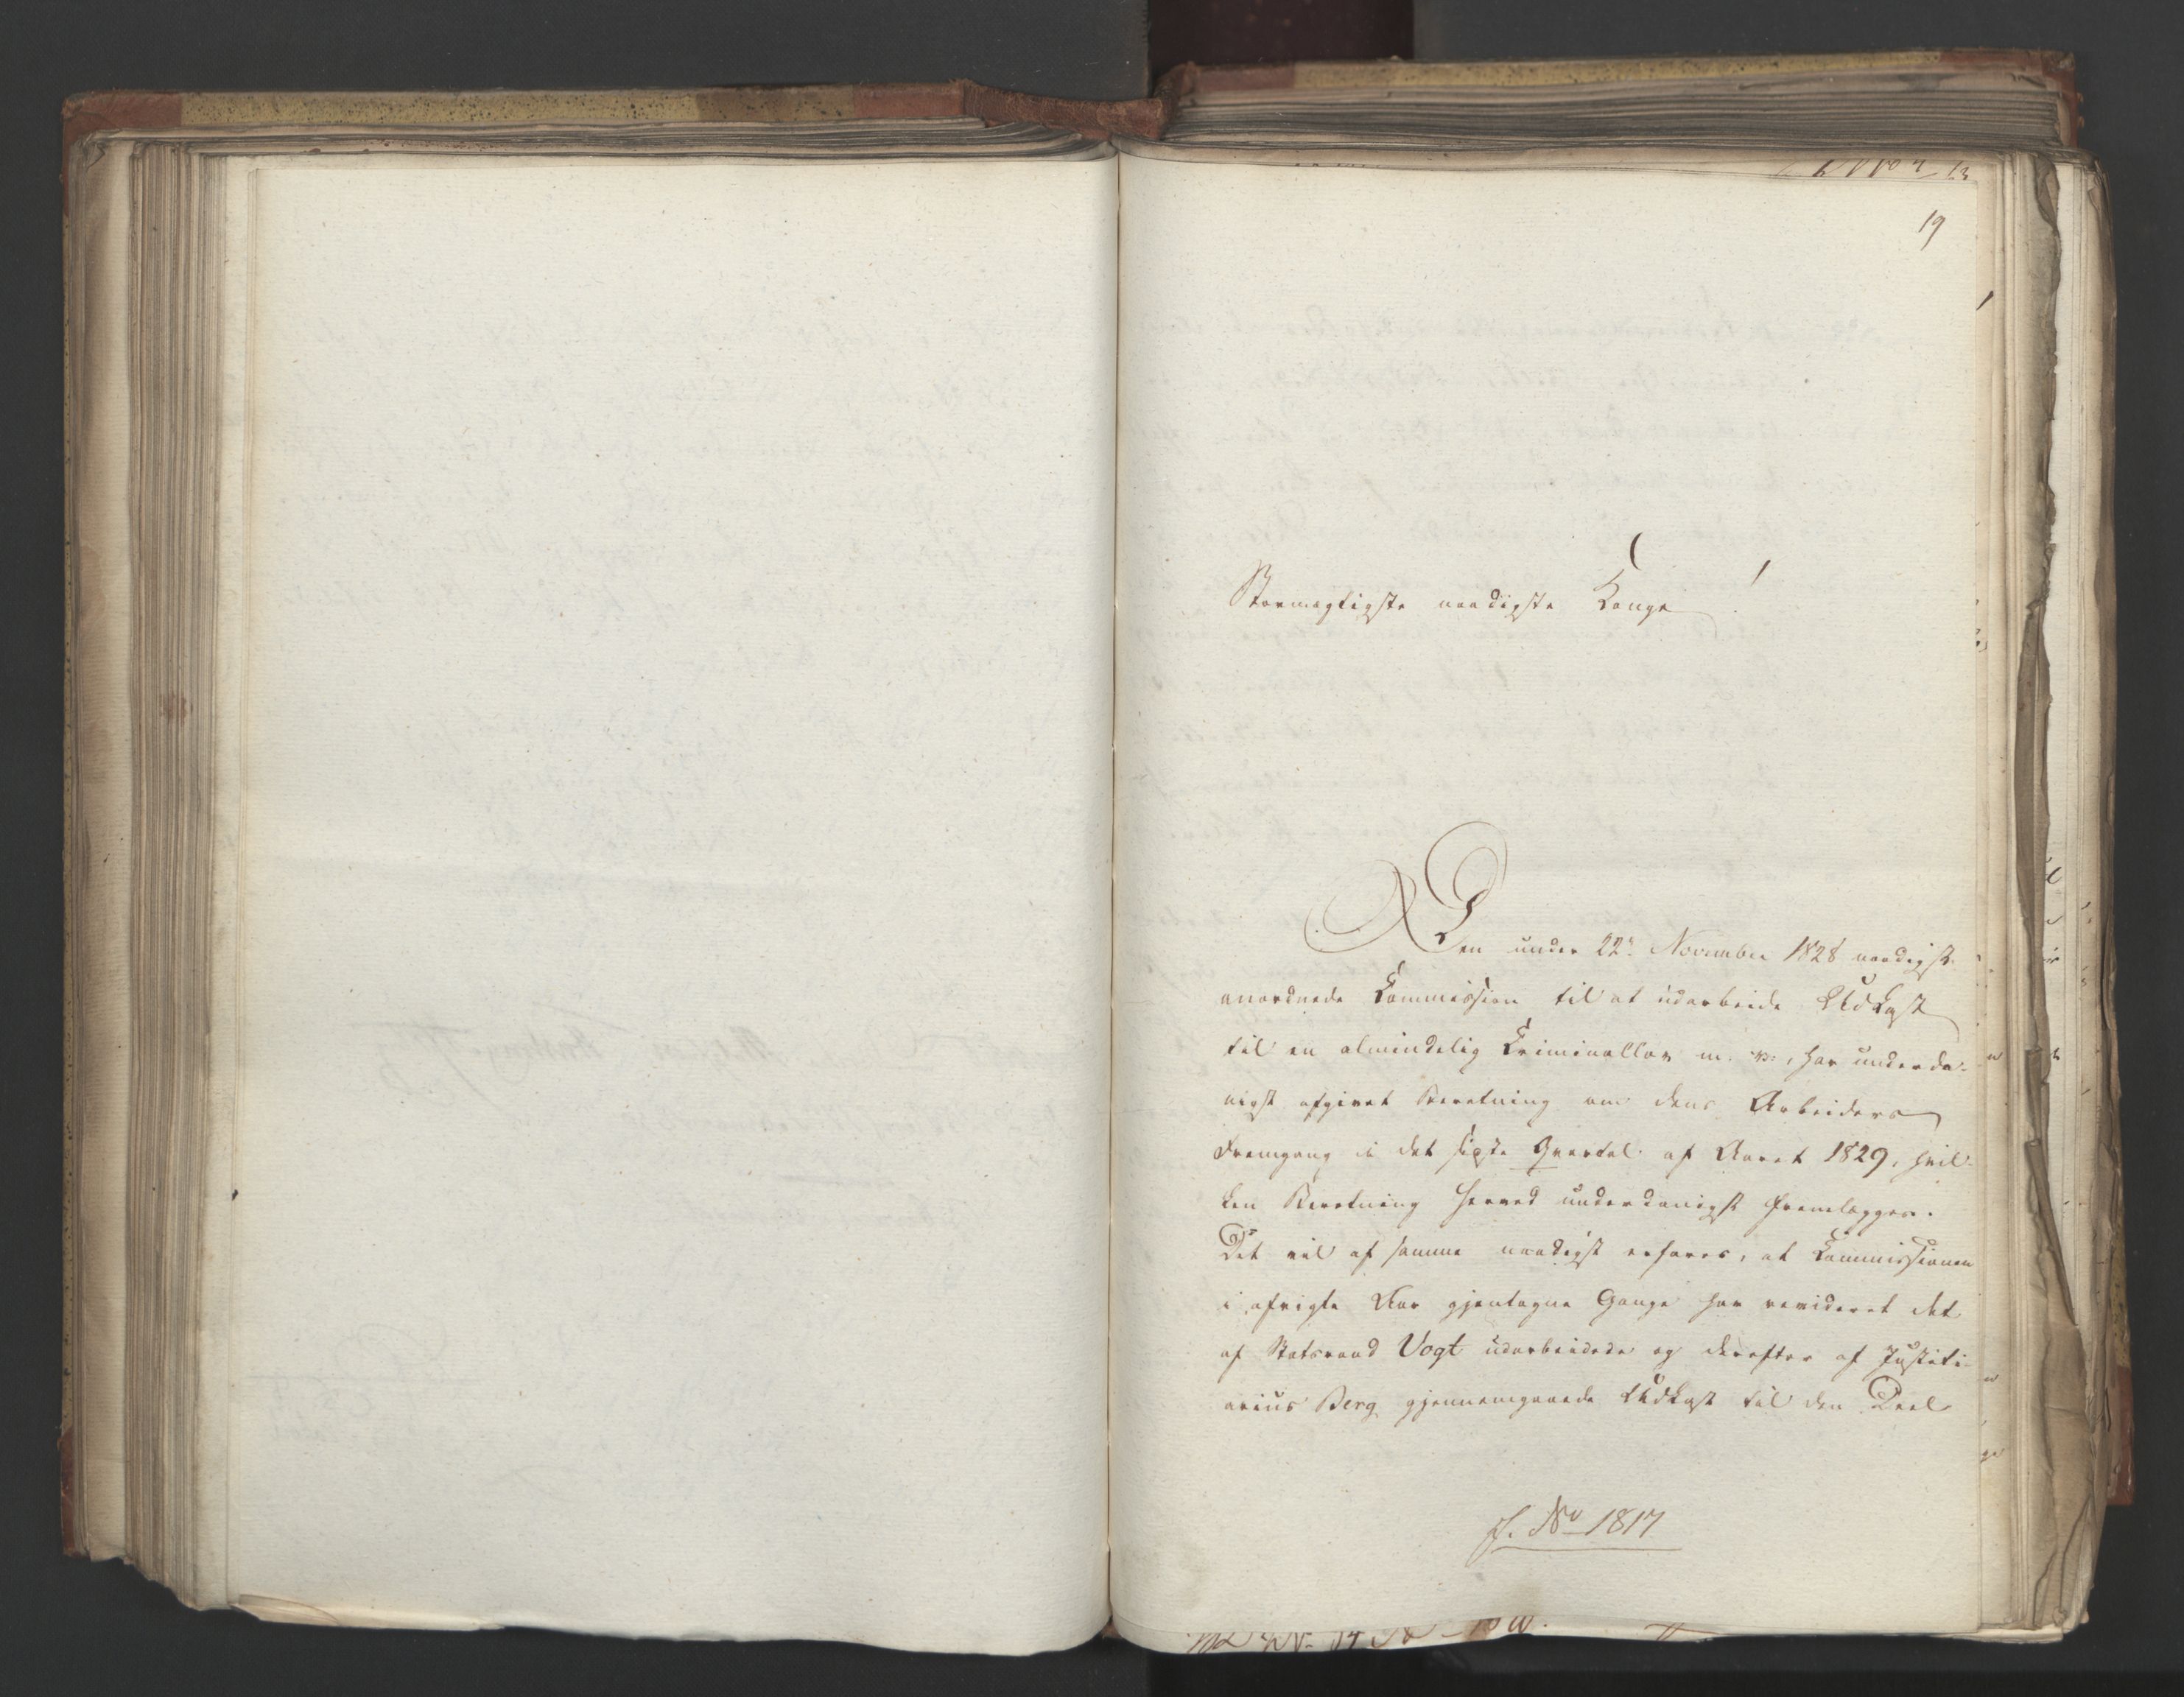 19
Stormægtigste naadigste Konge!
Den under 22de November 1828 naadigst
anordnede Kommission til at udarbeide Udkast
til en almindelig Kriminallov m. v., har underda-
nigst afgivet Beretning om dens Arbeiders
Fremgang i det sidste Qvartal af Aaret 1829, hvil-
ken Beretning herved underdanigst fremlægges.
Det vil af samme naadigst erfares, at Kommissionen
i afvigte Aar gjentagne Gange har revideret det
af Statsraad Vogt udarbeidede og derefter af Justiti-
arius Berg gjennemgaaede Udkast til den Deel
J. No 1817